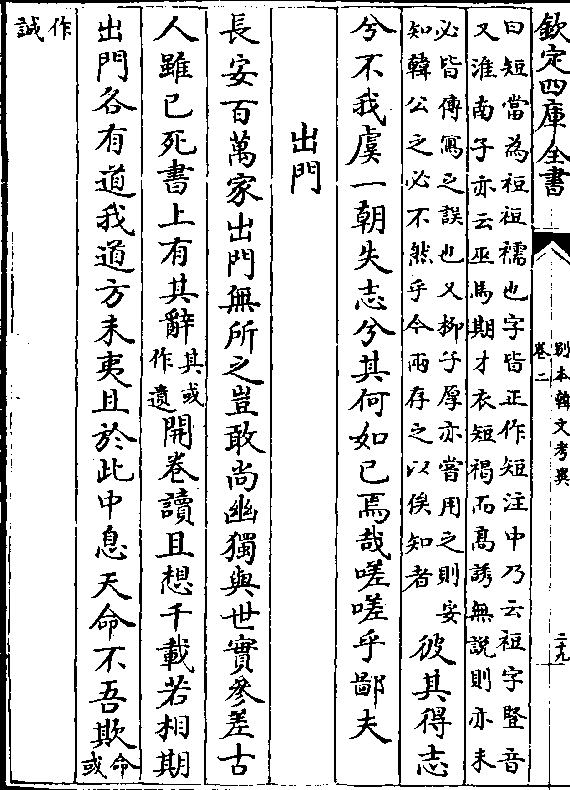 欽定四庫全書
别本韓文考異
卷二
二十九
曰短當為裋裋襦也字皆正作短注中乃云裋字豎音
又淮南子亦云巫馬期才衣短褐而高誘無説則亦未
必皆傳寫之誤也又柳子厚亦嘗用之則安
知韓公之必不然乎今兩存之以俟知者
彼其得志
兮不我虞一朝失志兮其何如已焉哉嗟嗟乎鄙夫
出門
長安百萬家出門無所之豈敢尚幽獨與世實參差古
人雖已死書上有其辭其或作遺開卷讀且想千載若相期
出門各有道我道方未夷且於此中息天命不吾欺命或
作誠